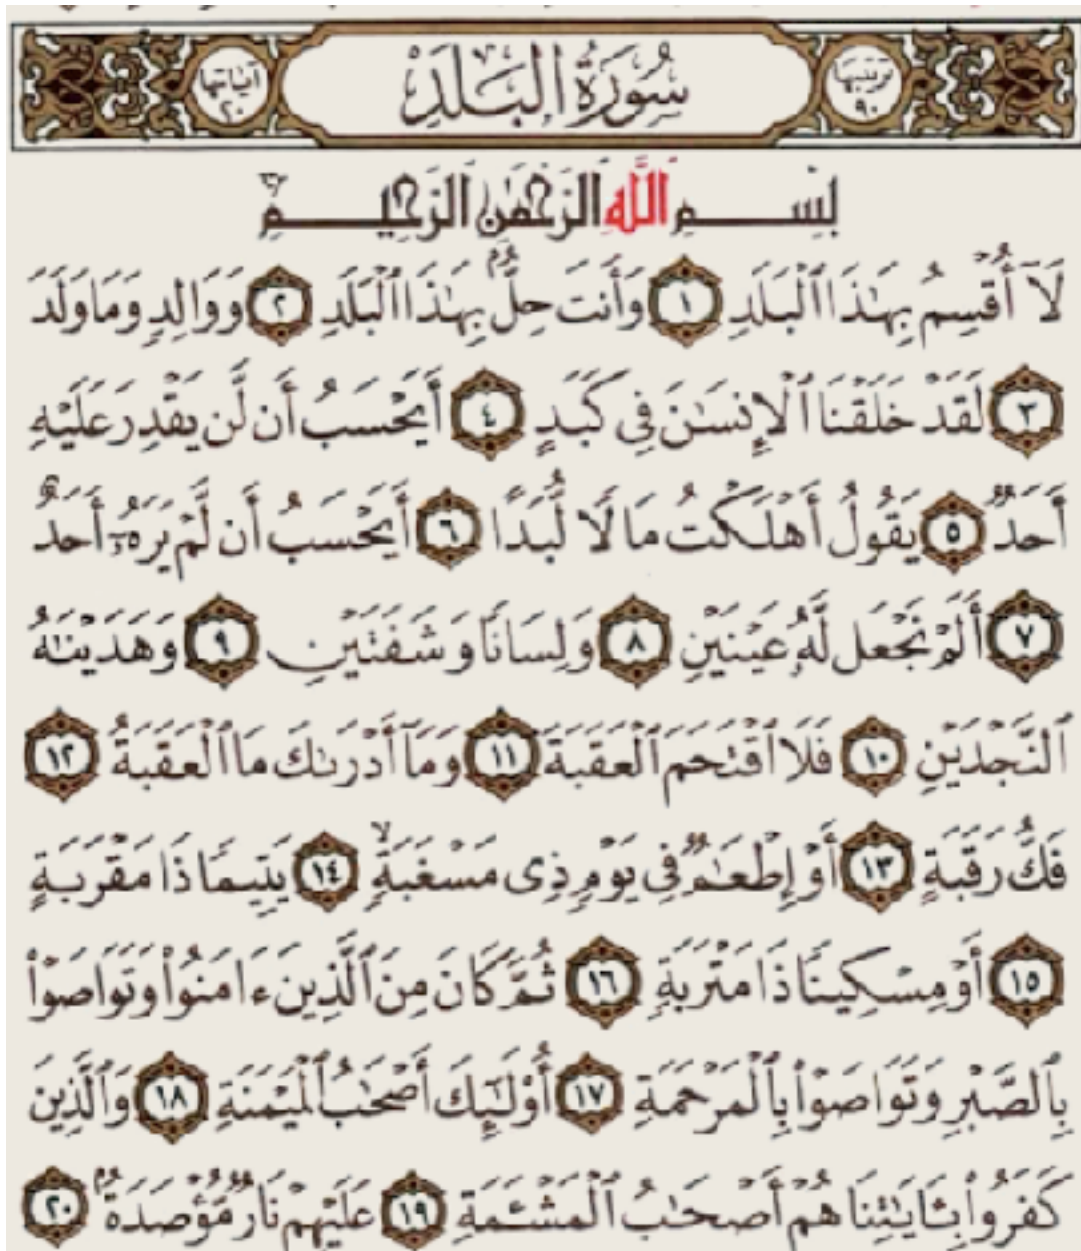 ترتيبها ٩٠ سُورَةُ الْبَلَدِ آياتها ٢٠
بِسْمِ اللَّهِ الرَّحْمَٰنِ الرَّحِيمِ
لَآ أُقْسِمُ بِهَٰذَا ٱلْبَلَدِ ١ وَأَنتَ حِلٌّۢ بِهَٰذَا ٱلْبَلَدِ ٢ وَوَالِدٍ وَمَا وَلَدَ
٣ لَقَدْ خَلَقْنَا ٱلْإِنسَٰنَ فِى كَبَدٍ ٤ أَيَحْسَبُ أَن لَّن يَقْدِرَ عَلَيْهِ
أَحَدٌ ٥ يَقُولُ أَهْلَكْتُ مَالًا لُّبَدًا ٦ أَيَحْسَبُ أَن لَّمْ يَرَهُۥٓ أَحَدٌ
٧ أَلَمْ نَجْعَل لَّهُۥ عَيْنَيْنِ ٨ وَلِسَانًا وَشَفَتَيْنِ ٩ وَهَدَيْنَٰهُ
ٱلنَّجْدَيْنِ ١٠ فَلَا ٱقْتَحَمَ ٱلْعَقَبَةَ ١١ وَمَآ أَدْرَىٰكَ مَا ٱلْعَقَبَةُ ١٢
فَكُّ رَقَبَةٍ ١٣ أَوْ إِطْعَٰمٌ فِى يَوْمٍ ذِى مَسْغَبَةٍۙ ١٤ يَتِيمًا ذَا مَقْرَبَةٍ
١٥ أَوْ مِسْكِينًا ذَا مَتْرَبَةٍ ١٦ ثُمَّ كَانَ مِنَ ٱلَّذِينَ ءَامَنُوا۟ وَتَوَاصَوْا۟
بِٱلصَّبْرِ وَتَوَاصَوْا۟ بِٱلْمَرْحَمَةِ ١٧ أُو۟لَٰٓئِكَ أَصْحَٰبُ ٱلْمَيْمَنَةِ ١٨ وَٱلَّذِينَ
كَفَرُوا۟ بِـَٔايَٰتِنَا هُمْ أَصْحَٰبُ ٱلْمَشْـَٔمَةِ ١٩ عَلَيْهِمْ نَارٌ مُّؤْصَدَةٌۢ ٢٠